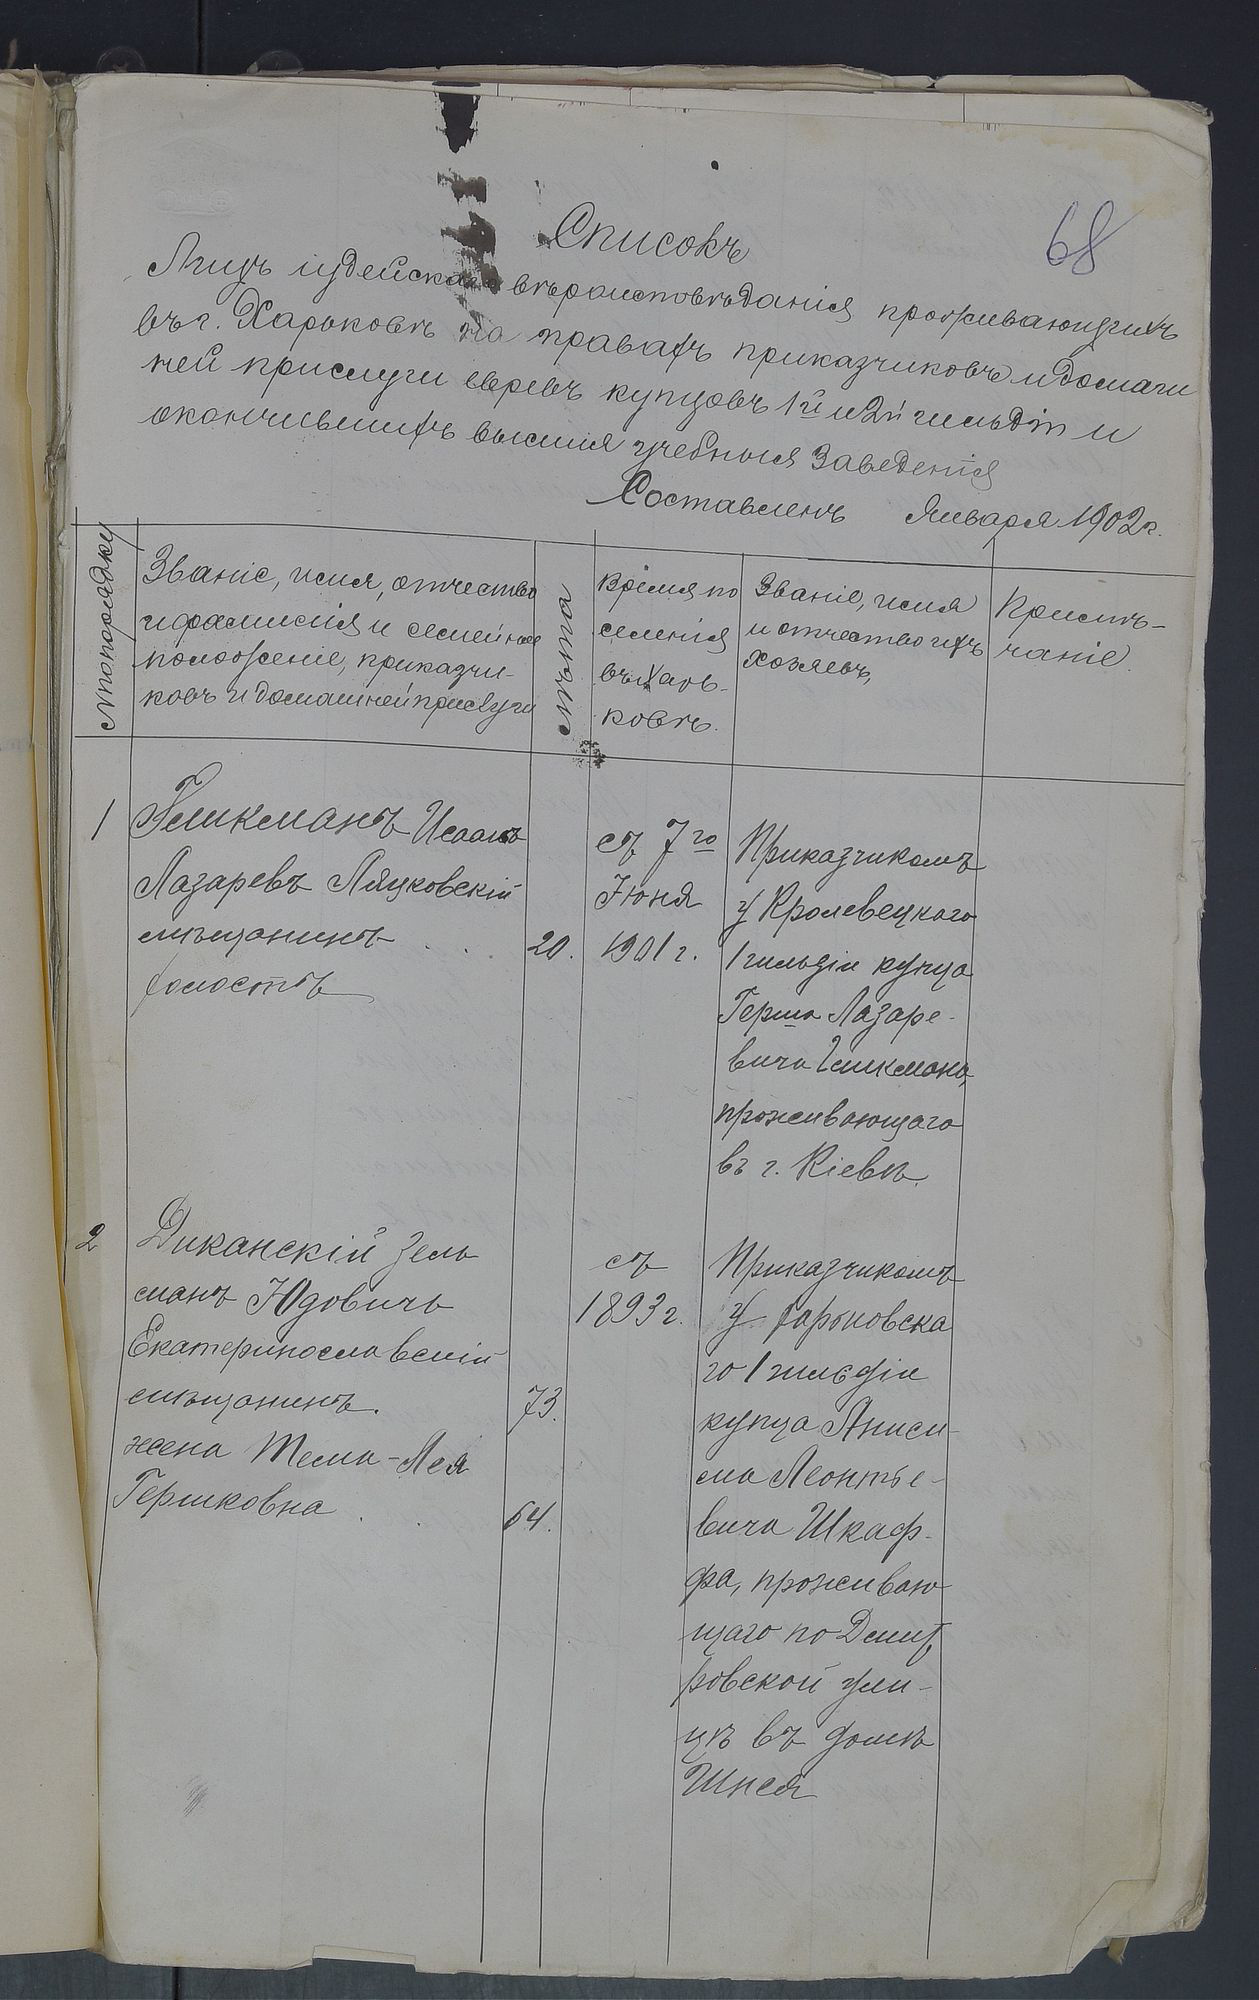 68
Списокъ
Лицъ іудейскаго вѣроисповѣданія проживающихъ
въ г. Харьковѣ на правахъ приказчиковъ и домаш
ней прислуги евреевъ купцовъ 1й и 2й гильдіи и
окончившихъ высшія учебныя заведенія
Составленъ Января 1902 г.
№ по порядку
Званіе, имя, отчество
и фамилія и семейное
положеніе, приказчи-
ковъ и домашней прислуги
Лѣта
Время по
селенія
въ Харь-
ковѣ.
Званіе, имя
и отчество ихъ
хозяевъ,
Примѣ-
чаніе.
1
Гликманъ Исаакъ
Лазаревъ Ляцковскій
мѣщанинъ . . 20.
холостъ
съ 7го
Іюня
1901 г.
Приказчикомъ
у Кролевецкаго
1 гильдіи купца
Герша Лазаре-
вича Гликмана,
проживающаго
въ г. Кіевѣ.
2
Диканскій Зель
манъ Юдовичъ
Екатеринославскій
мѣщанинъ. 73.
жена Тема-Лея
Гершковна . . 64.
съ
1893 г.
Приказчикомъ
у Харьковска
го 1 гильдіи
купца Аниси-
ма Леонтье-
вича Шкаф-
фа, проживаю
щаго по Дмит
ровской ули-
цѣ въ домѣ
Шнея